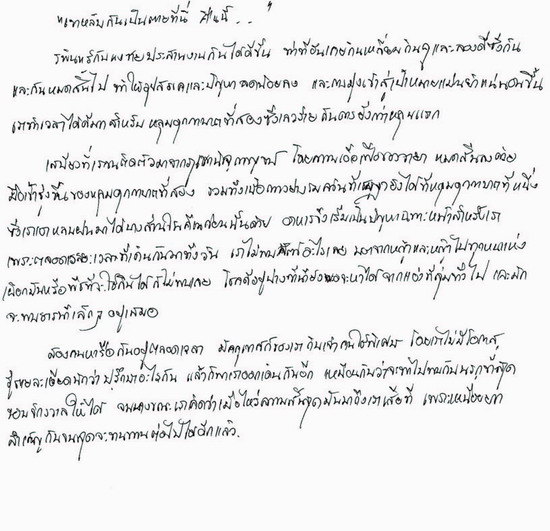 "เขาหลับกันเป็นตายที่นี่ ที่นี่..."
รพินทร์กับแงซายประสานงานกันได้ดีขึ้น ท่าทีอันเคยกินเหลี่ยม กินคูและลองดีซึ่งกัน
และกันหมดสิ้นไป ทำให้อุปสรรคและปัญหาลดน้อยลง และการมุ่งเข้าสู่เป้าหมายแม่นยำแน่นอนขึ้น
เราทำเวลาได้ดีมากสำหรับ หลุมอุกกาบาตที่สองซึ่งเลวร้าย กันดารยิ่งกว่าหลุมแรก
เสบียงที่เราขนติดตัวมาจาก โดยความเอื้อเฟื้อของวายา หมดสิ้นลงด้วย
มื้อเช้ารุ่งขึ้นของหลุมอุกกาบาตที่สอง รวมทั้งเนื้อกวางย่างรมควันที่ ยิงได้ที่หลุมอุกกาบาตที่หนึ่ง
ซึ่งเราเอาหลบฝนมาได้บางส่วนในคืนก่อนนั้นด้วย อาหารจึงเริ่มเป็นปัญหาเฉพาะหน้าสำหรับเรา
เพราะตลอดระยะเวลาที่เดินกันมาทั้งวัน เราไม่พบสัตว์อะไรเลย นอกจากหญ้าและหญ้าไปทุกหนแห่ง
เผือกมันหรือพืชที่จะใช้กินได้ก็ไม่พบเลย โชคดีอยู่บ้างที่น้ำยังพอจะหาได้จากแอ่งที่ลุ่มทั่วไป และมัก
จะพบธารน้ำเล็กๆ อยู่เสมอ
สองคนหารือกันอยู่ตลอดเวลา มัคคุเทศก์ของเรากับเจ้าคนใช้พิเศษ โดยเราไม่มีโอกาส
รู้รายละเอียดนักว่า ปรึกษาอะไรกัน แล้วก็พาเราออกเดินกันอีก เหมือนกับว่าจะพาไปพบกับนรกขุมสุด
ขอบจักรวาลให้ได้ จนบางขณะเราคิดว่าเมื่อไหร่ความสิ้นสุดมันมาถึงเราเสียที เพราะเหนื่อยยาก
ลำเค็ญกันจนสุดจะทนทานต่อไปได้อีกแล้ว.